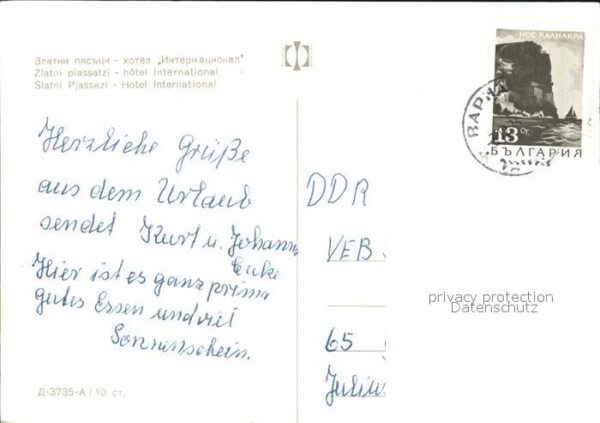 Златни пясъци - хотел „Интернационал"
Zlatni piassatzi - hôtel International
Slatni Pjassazi - Hotel International
НОС КАЛИАКРА
13 СТ.
БЪЛГАРИЯ
ВАРНА
Herzliche Grüße
aus dem Urlaub
sendet Kurt u. Johanna
Hier ist es ganz prima
gutes Essen und viel
Sonnenschein.
DDR
VEB
privacy protection
Datenschutz
65
Julius
Д-3735-А / 10 ст.